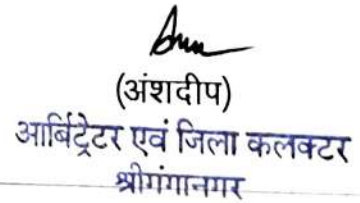 (अंशदीप)
आर्बिट्रेटर एवं जिला कलक्टर
श्रीगंगानगर